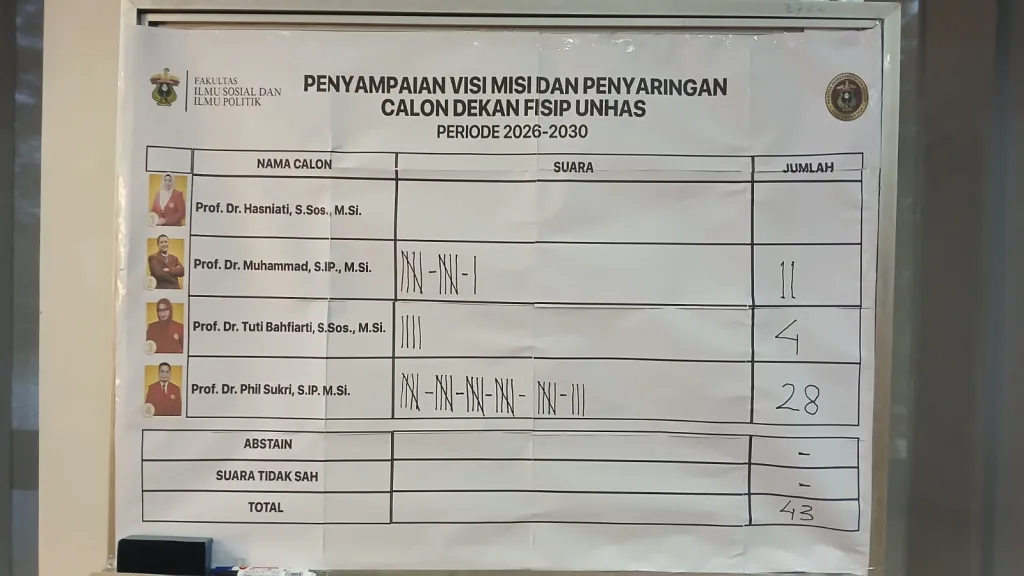 FAKULTAS
ILMU SOSIAL DAN
ILMU POLITIK
PENYAMPAIAN VISI MISI DAN PENYARINGAN
CALON DEKAN FISIP UNHAS
PERIODE 2026-2030
NAMA CALON SUARA JUMLAH
1 Prof. Dr. Hasniati, S.Sos., M.Si.
2 Prof. Dr. Muhammad, S.IP., M.Si. 11
3 Prof. Dr. Tuti Bahfiarti, S.Sos., M.Si. 4
4 Prof. Dr. Phil Sukri, S.IP. M.Si. 28
ABSTAIN -
SUARA TIDAK SAH -
TOTAL 43